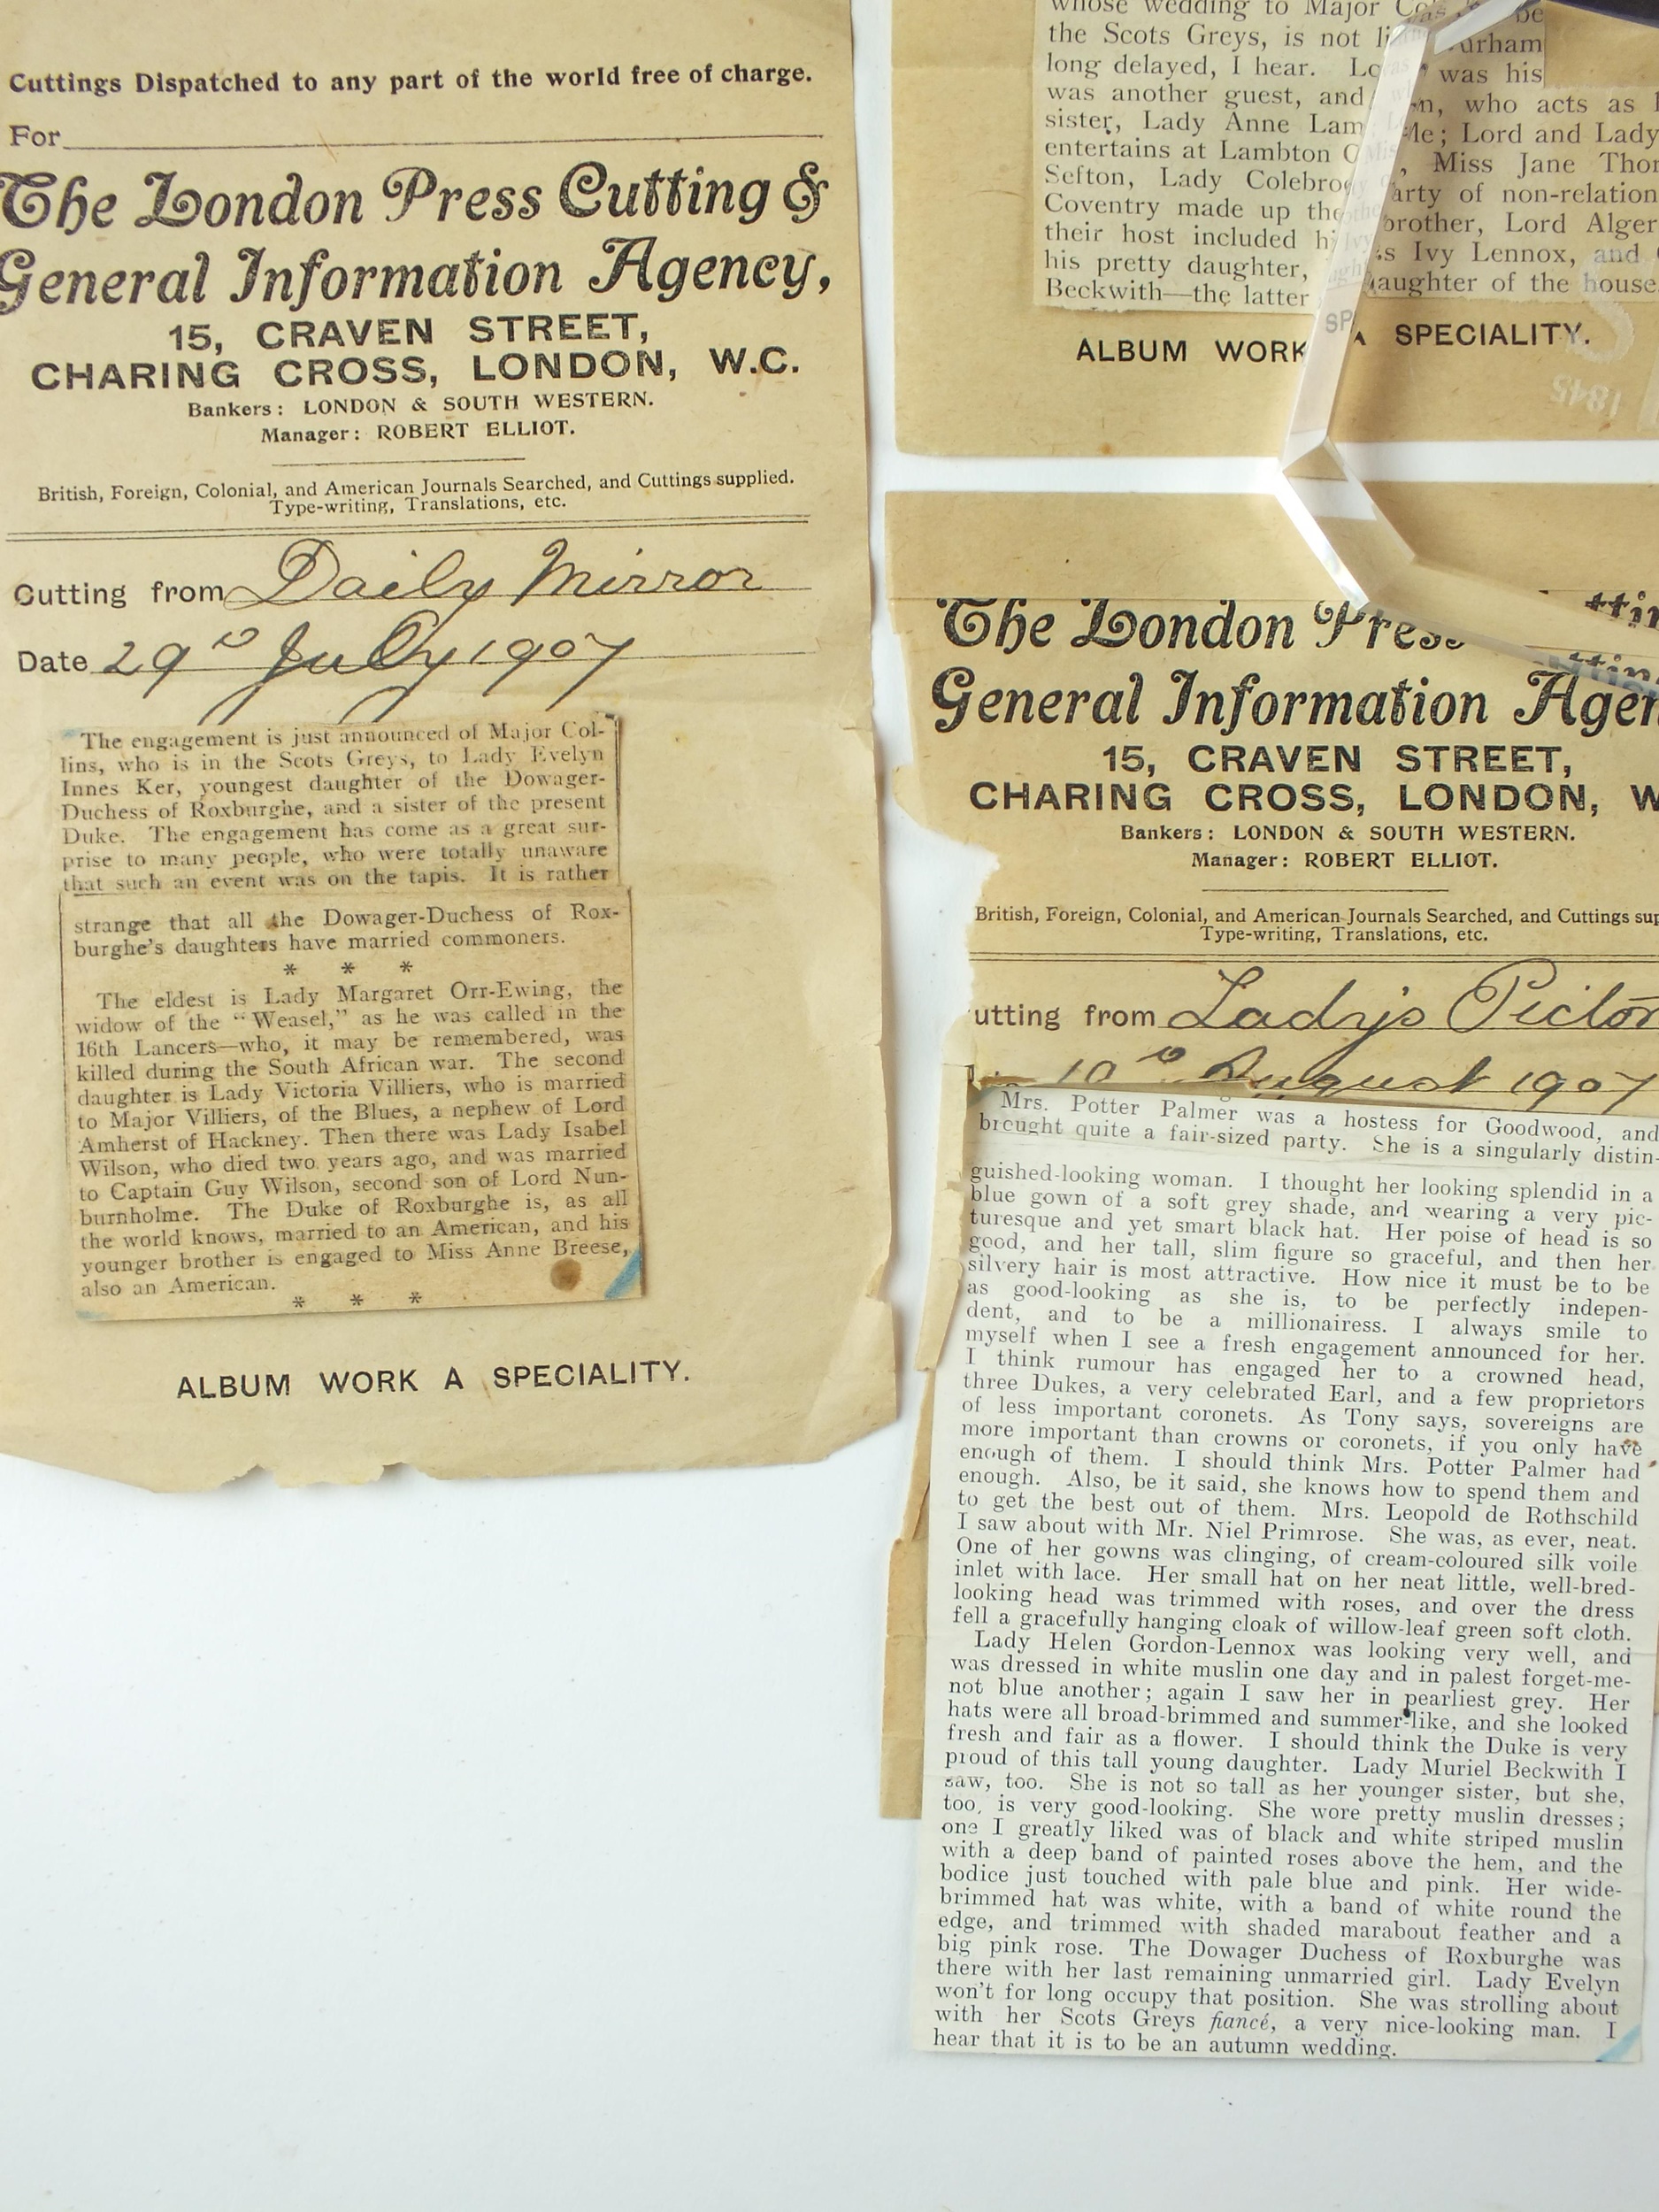 Cuttings Dispatched to any part of the world free of charge.
For
The London Press Cutting &
General Information Agency,
15, CRAVEN STREET,
CHARING CROSS, LONDON, W.C.
Bankers: LONDON & SOUTH WESTERN.
Manager: ROBERT ELLIOT.
British, Foreign, Colonial, and American Journals Searched, and Cuttings supplied.
Type-writing, Translations, etc.
Cutting from Daily Mirror
Date 29 July 1907
The engagement is just announced of Major Col-
lins, who is in the Scots Greys, to Lady Evelyn
Innes Ker, youngest daughter of the Dowager-
Duchess of Roxburghe, and a sister of the present
Duke. The engagement has come as a great sur-
prise to many people, who were totally unaware
that such an event was on the tapis. It is rather
strange that all the Dowager-Duchess of Rox-
burghe's daughters have married commoners.
* * *
The eldest is Lady Margaret Orr-Ewing, the
widow of the "Weasel," as he was called in the
16th Lancers—who, it may be remembered, was
killed during the South African war. The second
daughter is Lady Victoria Villiers, who is married
to Major Villiers, of the Blues, a nephew of Lord
Amherst of Hackney. Then there was Lady Isabel
Wilson, who died two years ago, and was married
to Captain Guy Wilson, second son of Lord Nun-
burnholme. The Duke of Roxburghe is, as all
the world knows, married to an American, and his
younger brother is engaged to Miss Anne Breese,
also an American.
* * *
ALBUM WORK A SPECIALITY.
whose wedding to Major be
the Scots Greys, is not
long delayed, I hear. was his
was another guest, and who acts as
sister, Lady Anne Lord and Lady
entertains at Lambton Miss Jane
Sefton, Lady of non-relation
Coventry made up brother, Lord
their host included Ivy Lennox, and
his pretty daughter, daughter of the house
Beckwith—the latter
ALBUM WORK A SPECIALITY.
1845
The London Press
General Information Agen
15, CRAVEN STREET,
CHARING CROSS, LONDON, W
Bankers: LONDON & SOUTH WESTERN.
Manager: ROBERT ELLIOT.
British, Foreign, Colonial, and American Journals Searched, and Cuttings sup
Type-writing, Translations, etc.
utting from Lady's Pictor
10 August 1907
Mrs. Potter Palmer was a hostess for Goodwood, and
brought quite a fair-sized party. She is a singularly distin-
guished-looking woman. I thought her looking splendid in a
blue gown of a soft grey shade, and wearing a very pic-
turesque and yet smart black hat. Her poise of head is so
good, and her tall, slim figure so graceful, and then her
silvery hair is most attractive. How nice it must be to be
as good-looking as she is, to be perfectly indepen-
dent, and to be a millionairess. I always smile to
myself when I see a fresh engagement announced for her.
I think rumour has engaged her to a crowned head,
three Dukes, a very celebrated Earl, and a few proprietors
of less important coronets. As Tony says, sovereigns are
more important than crowns or coronets, if you only have
enough of them. I should think Mrs. Potter Palmer had
enough. Also, be it said, she knows how to spend them and
to get the best out of them. Mrs. Leopold de Rothschild
I saw about with Mr. Niel Primrose. She was, as ever, neat.
One of her gowns was clinging, of cream-coloured silk voile
inlet with lace. Her small hat on her neat little, well-bred-
looking head was trimmed with roses, and over the dress
fell a gracefully hanging cloak of willow-leaf green soft cloth.
Lady Helen Gordon-Lennox was looking very well, and
was dressed in white muslin one day and in palest forget-me-
not blue another; again I saw her in pearliest grey. Her
hats were all broad-brimmed and summer-like, and she looked
fresh and fair as a flower. I should think the Duke is very
proud of this tall young daughter. Lady Muriel Beckwith I
saw, too. She is not so tall as her younger sister, but she,
too, is very good-looking. She wore pretty muslin dresses;
one I greatly liked was of black and white striped muslin
with a deep band of painted roses above the hem, and the
bodice just touched with pale blue and pink. Her wide-
brimmed hat was white, with a band of white round the
edge, and trimmed with shaded marabout feather and a
big pink rose. The Dowager Duchess of Roxburghe was
there with her last remaining unmarried girl. Lady Evelyn
won't for long occupy that position. She was strolling about
with her Scots Greys fiancé, a very nice-looking man. I
hear that it is to be an autumn wedding.